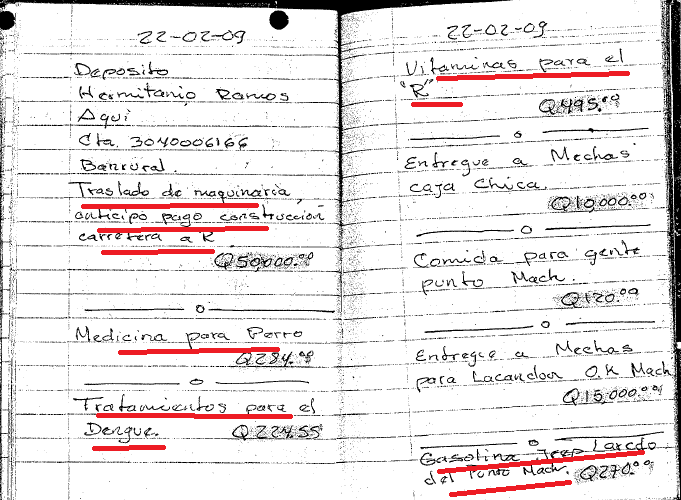 22-02-09
Deposito
Hermitanio Ramos
Aqui
Cta 3040006166
Banrural.
Traslado de maquinaria,
anticipo pago construcción
carretera a R.
Q50,000.00
o
Medicina para Perro
Q284.00
o
Tratamientos para el
Dengue. Q224.55
22-02-09
Vitaminas para el
"R"
Q495.00
o
Entregue a Mechas
caja chica.
Q10,000.00
o
Comida para gente
punto Mach.
Q120.00
o
Entregue a Mechas
para Lacandon O.K Mach
Q15,000.00
o
Gasolina Jeep Laredo
del Punto Mach. Q270.00